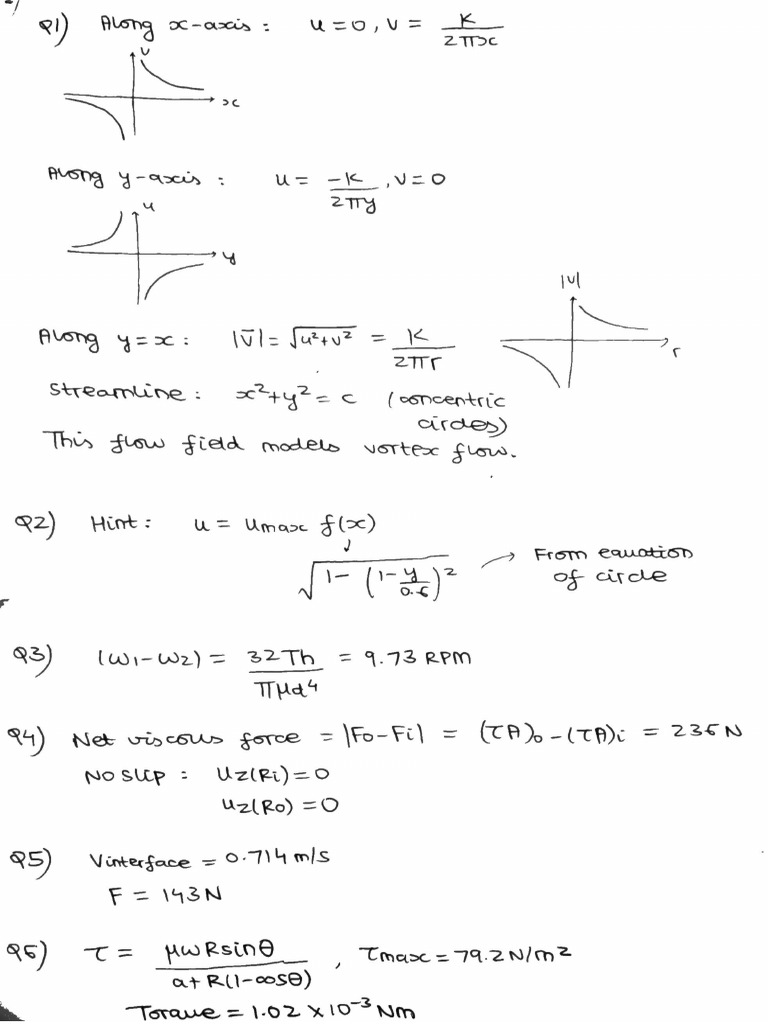 Q1) Along x-axis : u=0, v = K/2πx
v
x
Along y-axis : u = -K/2πy, v=0
u
y
|v|
Along y=x : |V̄| = √u²+v² = K/2πr
r
Streamline : x²+y² = c (concentric
circles)
This flow field models vortex flow.
Q2) Hint : u = umax f(x)
√1-(1-y/0.6)² → From equation
of circle
Q3) (ω1-ω2) = 32Th/πμd⁴ = 9.73 RPM
Q4) Net viscous force = |Fo-Fi| = (τA)o-(τA)i = 236 N
NO SLIP : uz(Ri)=0
uz(Ro)=0
Q5) Vinterface = 0.714 m/s
F = 143N
Q6) τ = μωRsinθ/a+R(1-cosθ) , τmax = 79.2 N/m²
Torque = 1.02 x 10⁻³ Nm